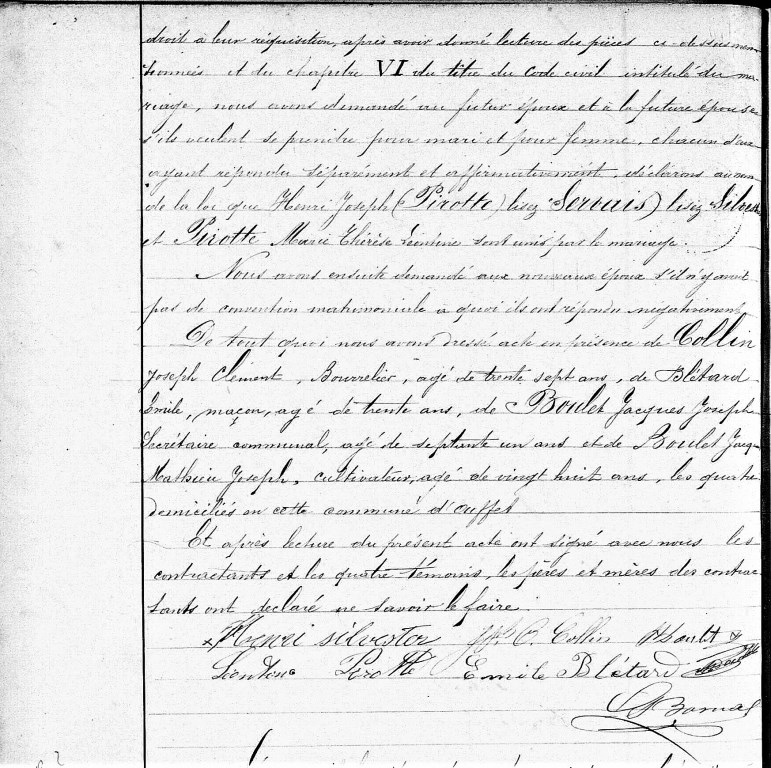 droit à leur réquisition, après avoir donné lecture des pièces ci-dessus men
tionnées et du chapitre VI du titre du code civil intitulé du ma-
riage, nous avons demandé au futur époux et à la future épouse
s'ils veulent se prendre pour mari et pour femme, chacun d'eux
ayant répondu séparément et affirmativement, déclarons au nom
de la loi que Henri Joseph (Pirotte) lisez Servais) lisez Silvest
et Pirotte Marie Thérèse Léontine sont unis par le mariage.
Nous avons ensuite demandé aux nouveaux époux s'il n'y avait
pas de convention matrimoniale a quoi ils ont répondu négativement
De tout quoi nous avons dressé acte en présence de Collin
Joseph Clément, Bourrelier, agé de trente sept ans, de Blétard
Emile, maçon, agé de trente ans, de Boulet Jacques Joseph
Secrétaire communal, agé de septante un ans et de Boulet Jacq
Mathieu Joseph, cultivateur, agé de vingt huit ans, les quatre
domiciliés en cette commune d'Ouffet
Et après lecture du présent acte ont signé avec nous les
contractants et les quatre témoins, les pères et mères des contrac
tants ont déclaré ne savoir le faire.
x Henri silvester C. Collin Boulet
Léontine Pirotte Emile Blétard